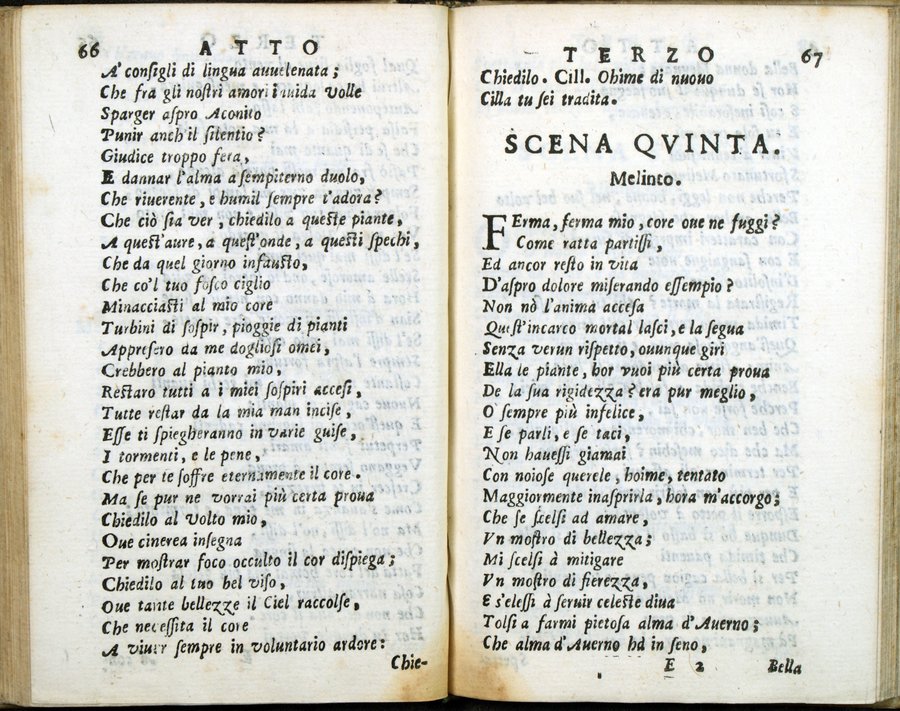 66 ATTO
A' consigli di lingua auuelenata;
Che fra gli nostri amori inuida volle
Sparger aspro Aconito
Punir anch'il silentio?
Giudice troppo fera,
E dannar l'alma a sempiterno duolo,
Che riuerente, e humil sempre t'adora?
Che ciò sia ver, chiedilo a queste piante,
A quest'aure, a quest'onde, a questi spechi,
Che da quel giorno infausto,
Che co'l tuo fosco ciglio
Minacciasti al mio core
Turbini di sospir, pioggie di pianti
Appresero da me dogliosi omei,
Crebbero al pianto mio,
Restaro tutti a i miei sospiri accesi,
Tutte restar da la mia man incise,
Esse ti spiegheranno in varie guise,
I tormenti, e le pene,
Che per te soffre eternamente il core.
Ma se pur ne vorrai più certa proua
Chiedilo al volto mio,
Oue cinerea insegna
Per mostrar foco occulto il cor dispiega;
Chiedilo al tuo bel viso,
Oue tante bellezze il Ciel raccolse,
Che necessita il core
A viuer sempre in voluntario ardore:
Chie-
TERZO 67
Chiedilo. Cill. Ohime di nuouo
Cilla tu sei tradita.
SCENA QVINTA.
Melinto.
FErma, ferma mio, core oue ne fuggi?
Come ratta partissi,
Ed ancor resto in vita
D'aspro dolore miserando essempio?
Non nò l'anima accesa
Quest'incarco mortal lasci, e la segua
Senza verun rispetto, ouunque giri
Ella le piante, hor vuoi più certa proua
De la sua rigidezza? era pur meglio,
O' sempre più infelice,
E se parli, e se taci,
Non hauessi giamai
Con noiose querele, hoime, tentato
Maggiormente inasprirla, hora m'accorgo;
Che se scelsi ad amare,
Vn mostro di bellezza;
Mi scelsi à mitigare
Vn mostro di fierezza,
E s'elessi à seruir celeste diua
Tolsi a farmi pietosa alma d'Auerno;
Che alma d'Auerno hà in seno,
E 2 Bella